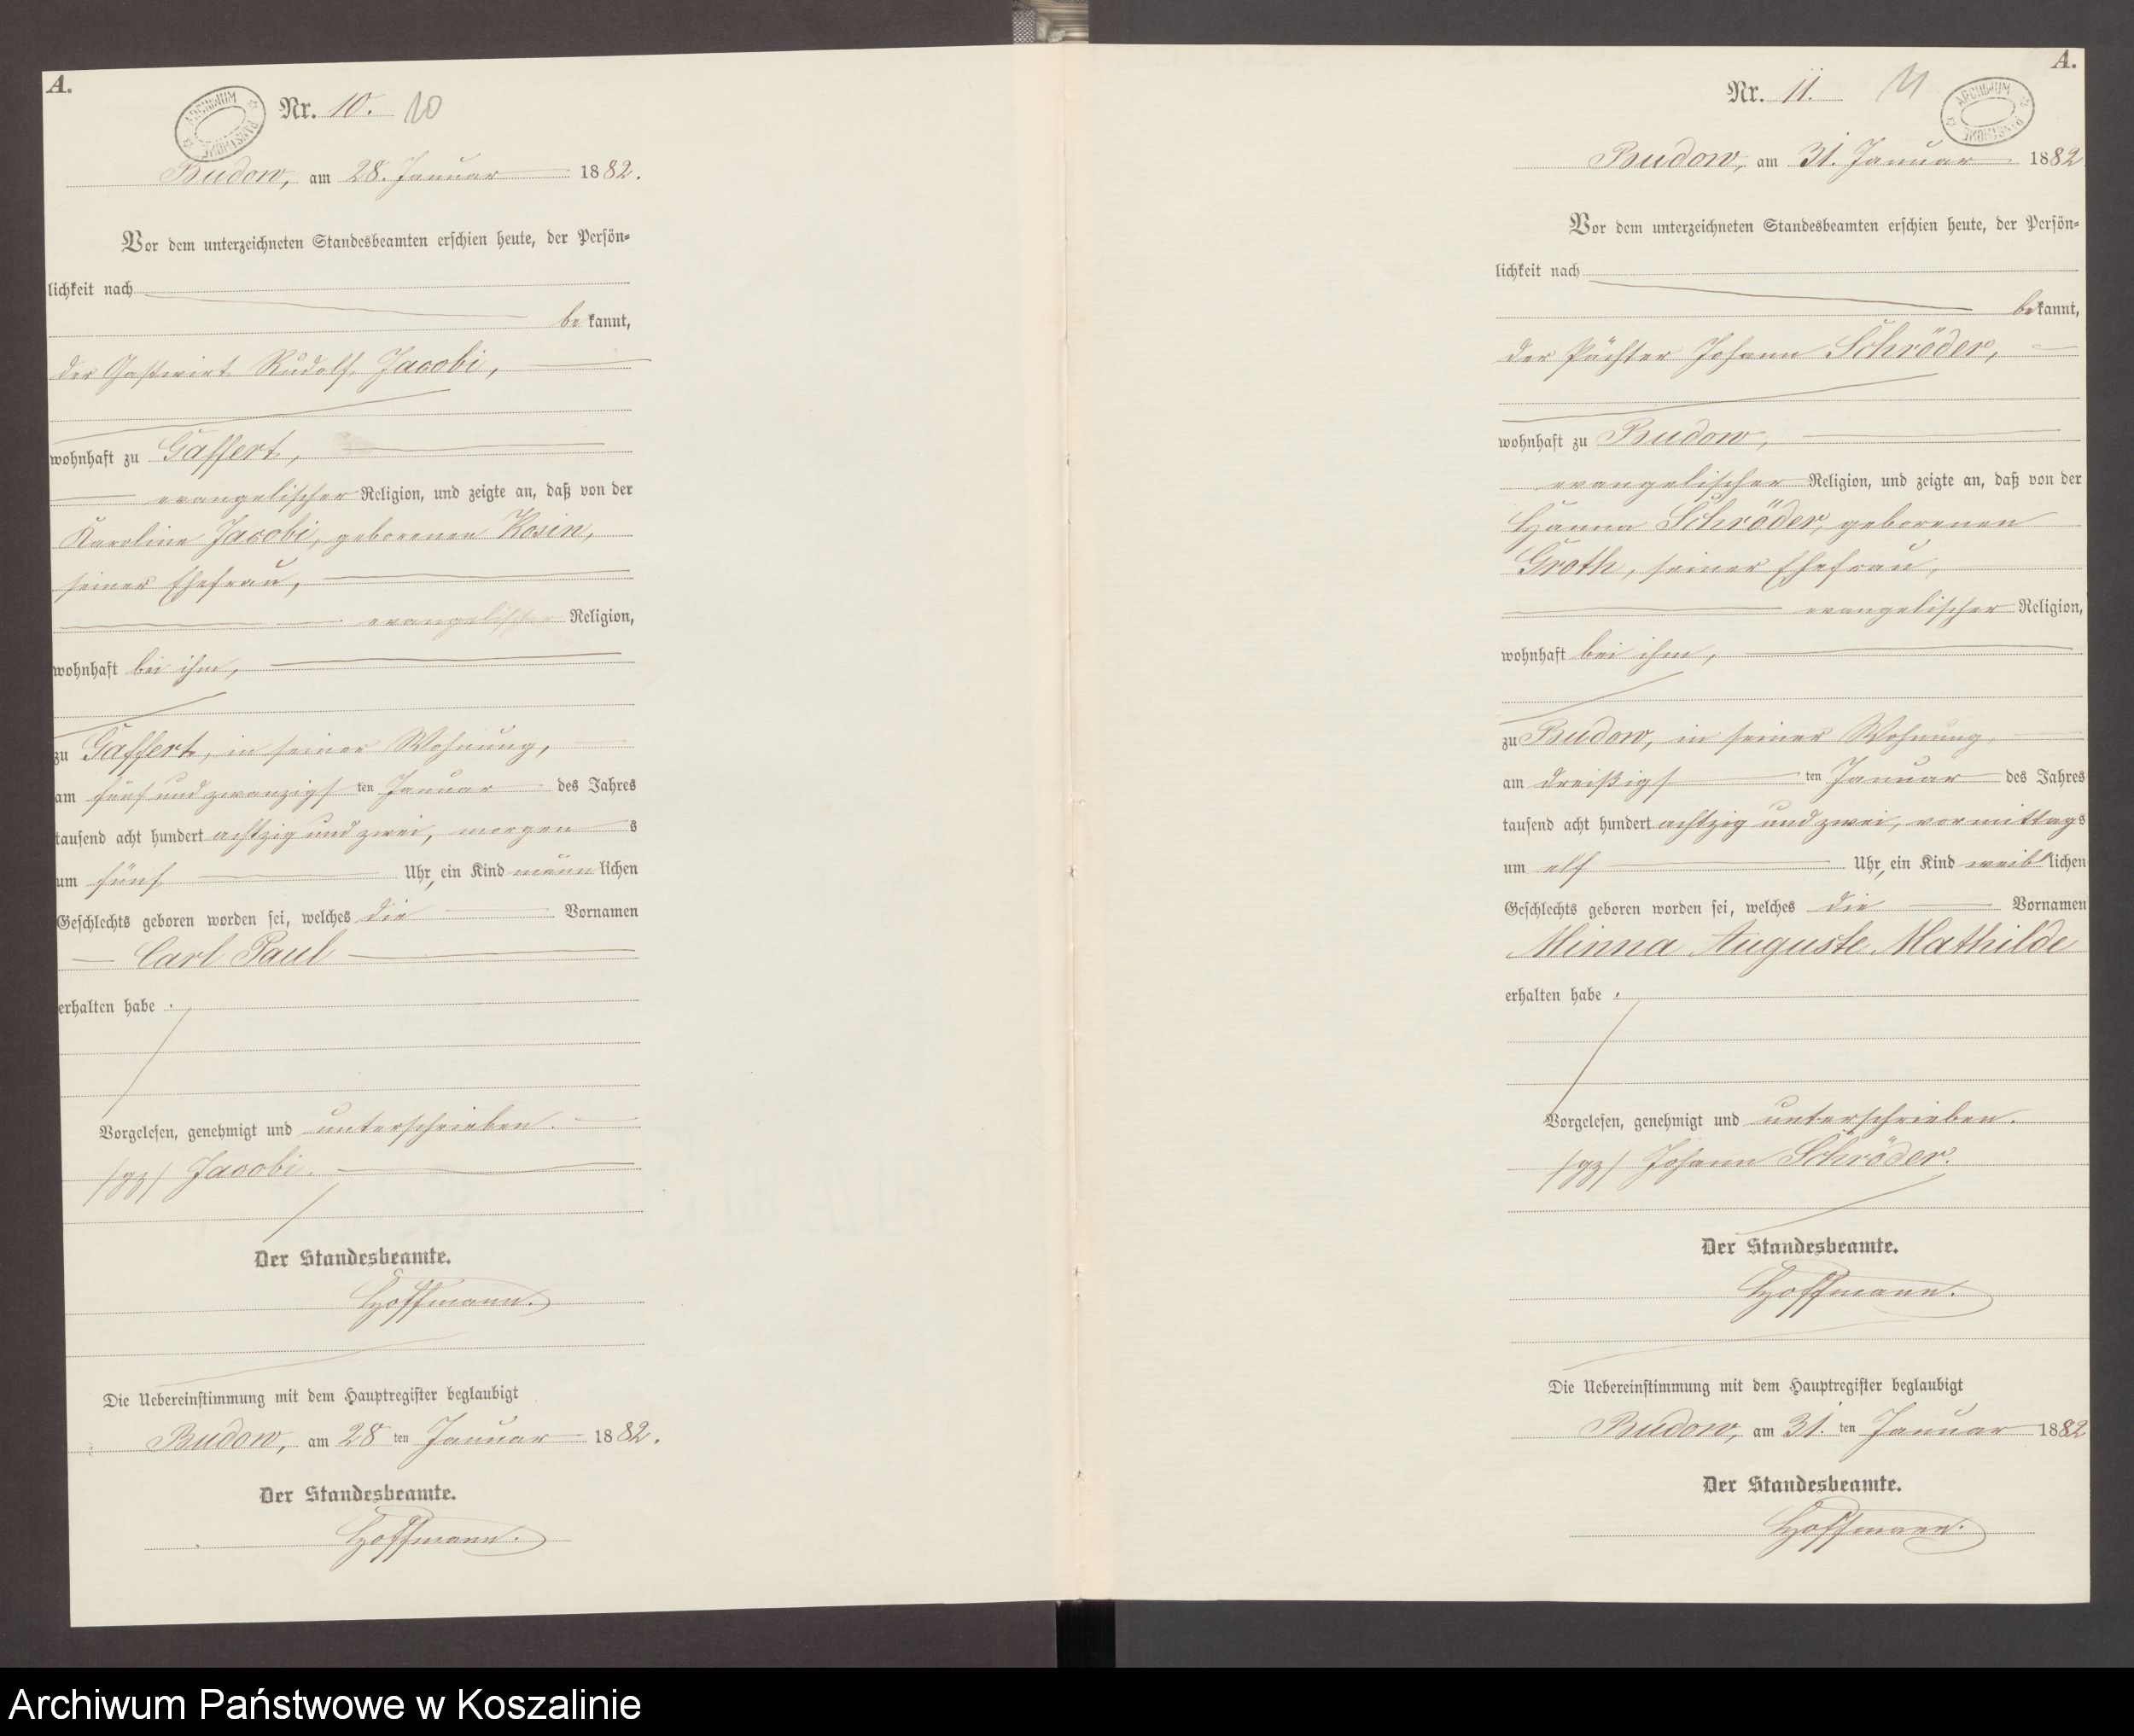 A.
ARCHIWUM PAŃSTWOWE
Nr. 10. 10
Budow, am 28. Januar 1882.
Vor dem unterzeichneten Standesbeamten erschien heute, der Persön-
lichkeit nach
bekannt,
der Gastwirt Rudolf Jacobi,
wohnhaft zu Gaffert,
evangelischer Religion, und zeigte an, daß von der
Karoline Jacobi, geborenen Kosin,
seiner Ehefrau,
evangelischer Religion,
wohnhaft bei ihm,
zu Gaffert, in seiner Wohnung,
am fünf und zwanzigsten Januar des Jahres
tausend acht hundert achtzig und zwei, morgens
um fünf Uhr, ein Kind männlichen
Geschlechts geboren worden sei, welches die Vornamen
Carl Paul
erhalten habe.
Vorgelesen, genehmigt und unterschrieben.
/gz/ Jacobi.
Der Standesbeamte.
Hoffmann.
Die Uebereinstimmung mit dem Hauptregister beglaubigt
Budow, am 28ten Januar 1882.
Der Standesbeamte.
Hoffmann.
A.
Nr. 11. 11
ARCHIWUM PAŃSTWOWE
Budow, am 31. Januar 1882
Vor dem unterzeichneten Standesbeamten erschien heute, der Persön-
lichkeit nach
bekannt,
der Pächter Johann Schröder,
wohnhaft zu Budow,
evangelischer Religion, und zeigte an, daß von der
Hanna Schröder, geborenen
Groth, seiner Ehefrau,
evangelischer Religion,
wohnhaft bei ihm,
zu Budow, in seiner Wohnung
am dreißigsten Januar des Jahres
tausend acht hundert achtzig und zwei, vormittags
um elf Uhr, ein Kind weiblichen
Geschlechts geboren worden sei, welches die Vornamen
Minna Auguste Mathilde
erhalten habe.
Vorgelesen, genehmigt und unterschrieben.
/gz/ Johann Schröder.
Der Standesbeamte.
Hoffmann.
Die Uebereinstimmung mit dem Hauptregister beglaubigt
Budow, am 31.ten Januar 1882
Der Standesbeamte.
Hoffmann.
Archiwum Państwowe w Koszalinie